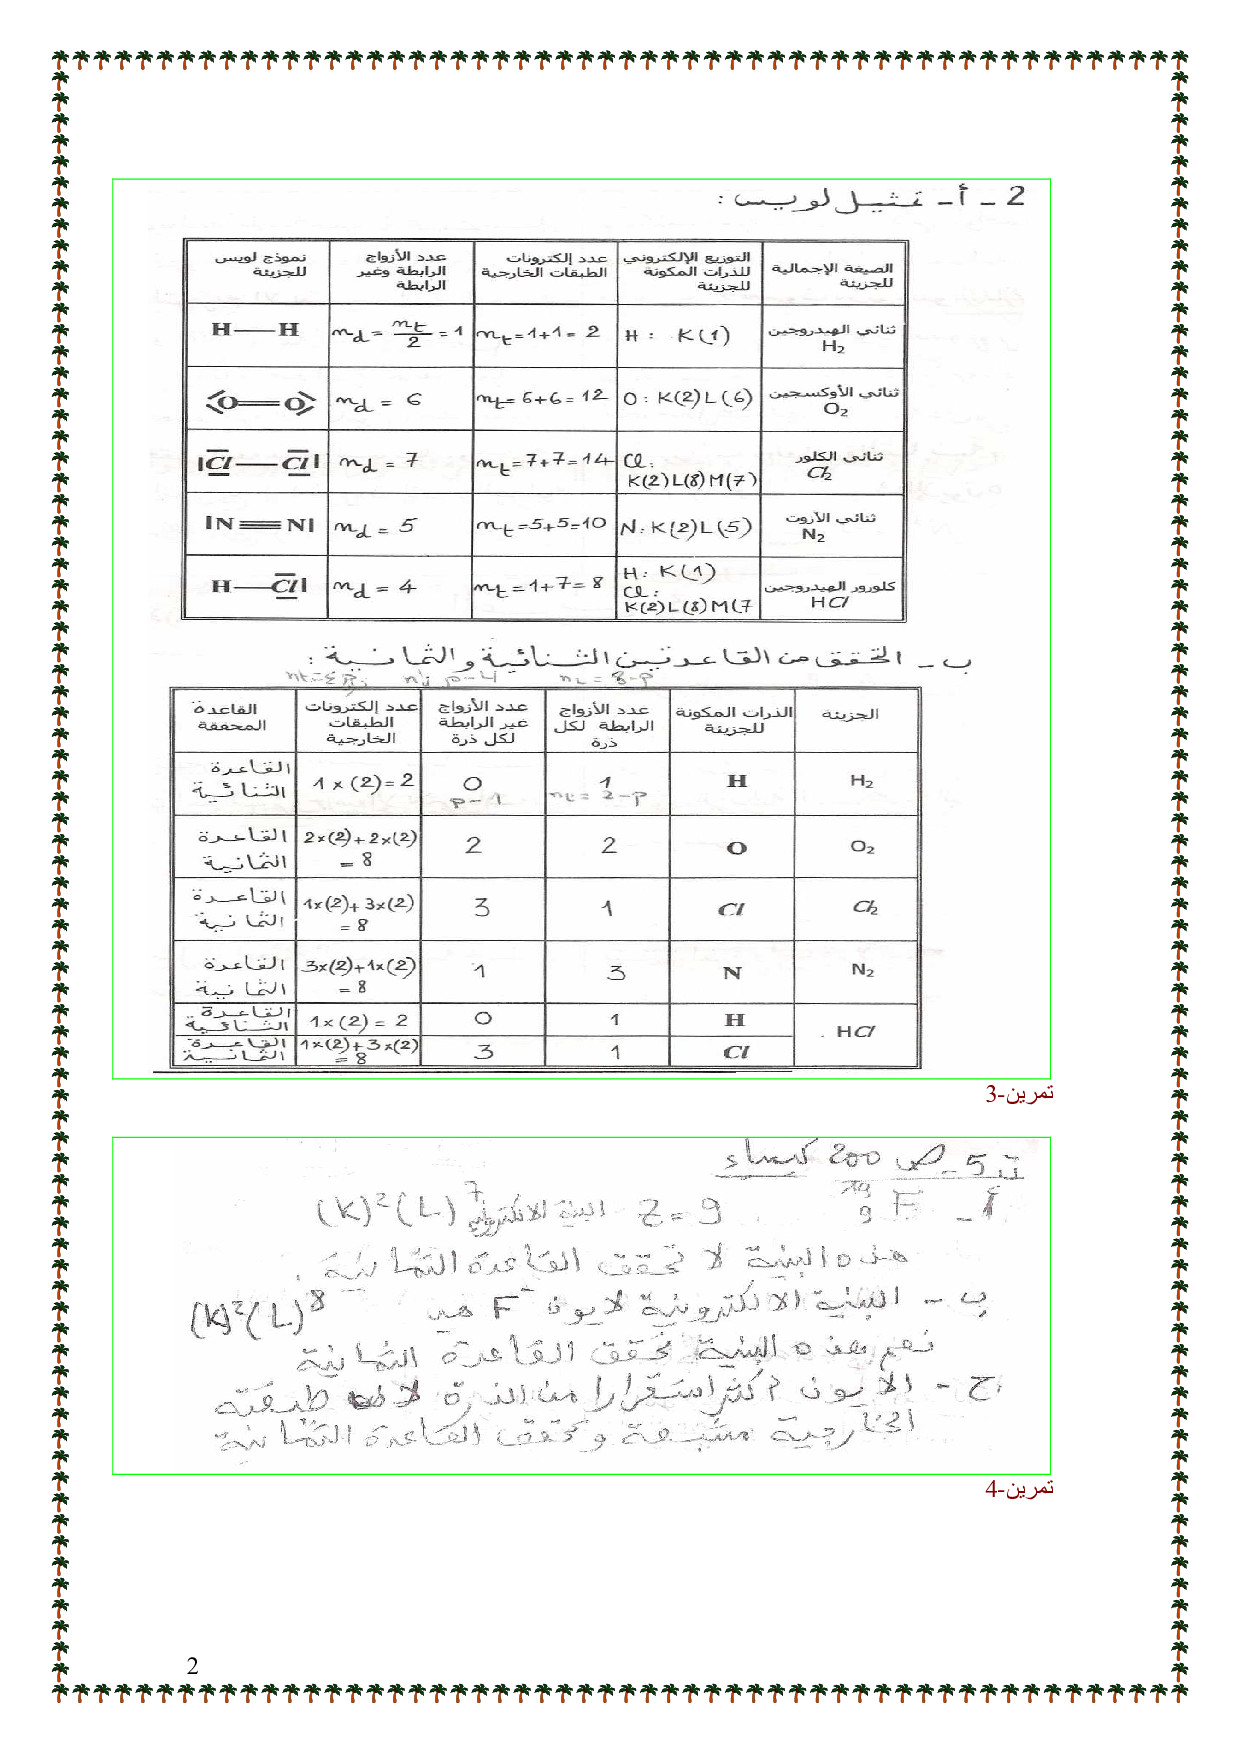 2 - أ - تمثيل لويس :
الصيغة الإجمالية للجزيئة | التوزيع الإلكتروني للذرات المكونة للجزيئة | عدد إلكترونات الطبقات الخارجية | عدد الأزواج الرابطة وغير الرابطة | نموذج لويس للجزيئة
ثنائي الهيدروجين H₂ | H : K(1) | n_t = 1+1 = 2 | n_d = n_t/2 = 1 | H—H
ثنائي الأوكسجين O₂ | O : K(2)L(6) | n_t = 6+6 = 12 | n_d = 6 | ⟨O═O⟩
ثنائي الكلور Cl₂ | Cl : K(2)L(8)M(7) | n_t = 7+7 = 14 | n_d = 7 | |Cl—Cl|
ثنائي الآزوت N₂ | N : K(2)L(5) | n_t = 5+5 = 10 | n_d = 5 | |N≡N|
كلورور الهيدروجين HCl | H : K(1) Cl : K(2)L(8)M(7 | n_t = 1+7 = 8 | n_d = 4 | H—Cl|
ب - التحقق من القاعدتين الثنائية والثمانية :
n_L = 8-p
الجزيئة | الذرات المكونة للجزيئة | عدد الأزواج الرابطة لكل ذرة | عدد الأزواج غير الرابطة لكل ذرة | عدد إلكترونات الطبقات الخارجية | القاعدة المحققة
H₂ | H | 1 | 0 | 1×(2)=2 | القاعدة الثنائية
O₂ | O | 2 | 2 | 2×(2)+2×(2) = 8 | القاعدة الثمانية
Cl₂ | Cl | 1 | 3 | 1×(2)+3×(2) = 8 | القاعدة الثمانية
N₂ | N | 3 | 1 | 3×(2)+1×(2) = 8 | القاعدة الثمانية
HCl | H | 1 | 0 | 1×(2) = 2 | القاعدة الثنائية
Cl | 1 | 3 | 1×(2)+3×(2) = 8 | القاعدة الثمانية
تمرين-3
ت5 - ص 200 كيمياء
أ - ¹⁹₉F Z = 9 البنية الالكترونية (K)²(L)⁷
هذه البنية لا تحقق القاعدة الثمانية .
ب - البنية الالكترونية لايون F⁻ هي (K)²(L)⁸
نعم هذه البنية تحقق القاعدة الثمانية
ج - الايون أكثر استقرارا من الذرة لان طبقته
الخارجية مشبعة وتحقق القاعدة الثمانية
تمرين-4
2